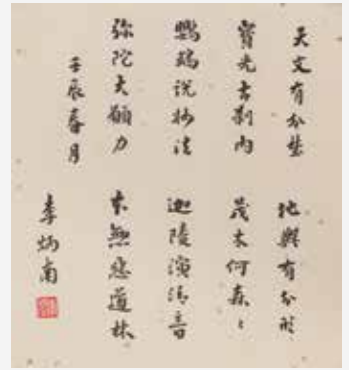 天文有分埜 地輿有分
寶光古剎內 茂木何森々
鸚鵡說妙法 迦陵演清音
弥陀大願力 無悲道林
壬辰春月 李炳南